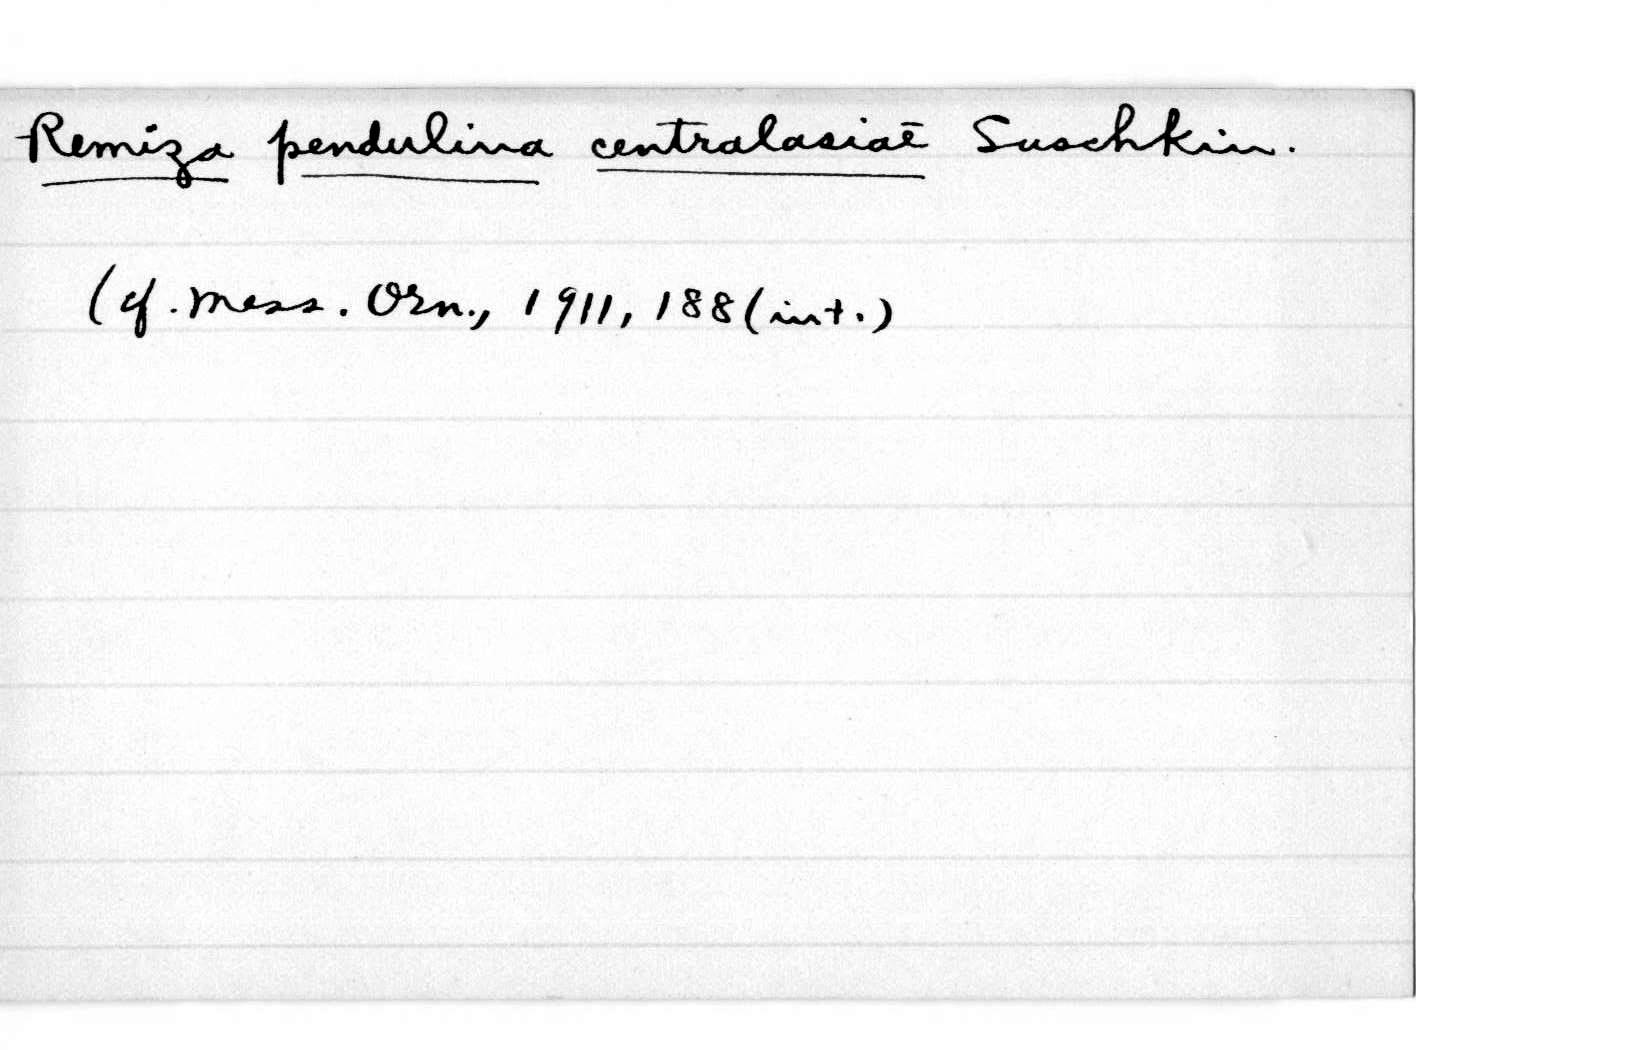 Remiza pendulina centralasiaē Suschkin.
(cf. Mess. Orn., 1911, 188 (int.)